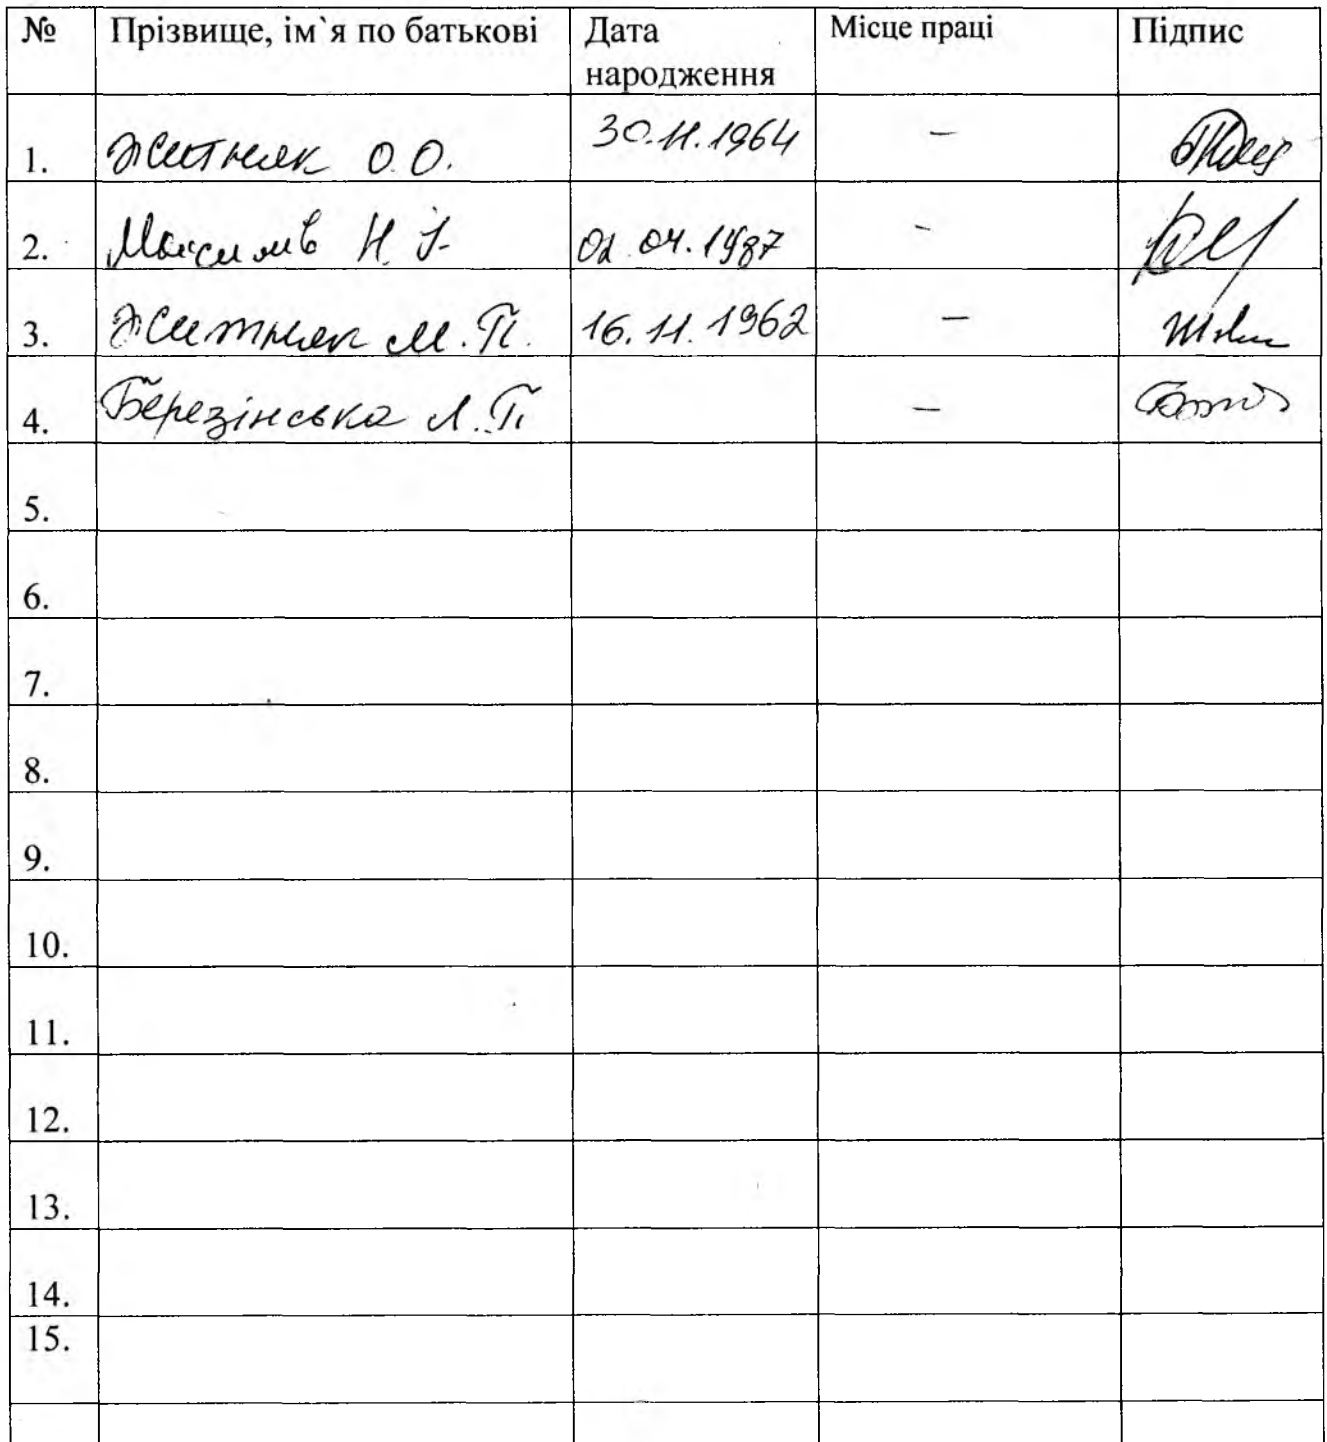 № Прізвище, ім`я по батькові Дата народження Місце праці Підпис
1. Житняк О.О. 30.11.1964 –
2. Максимів Н. І. 02.04.1987 –
3. Житняк М.П. 16.11.1962 –
4. Березінська Л.П. –
5.
6.
7.
8.
9.
10.
11.
12.
13.
14.
15.